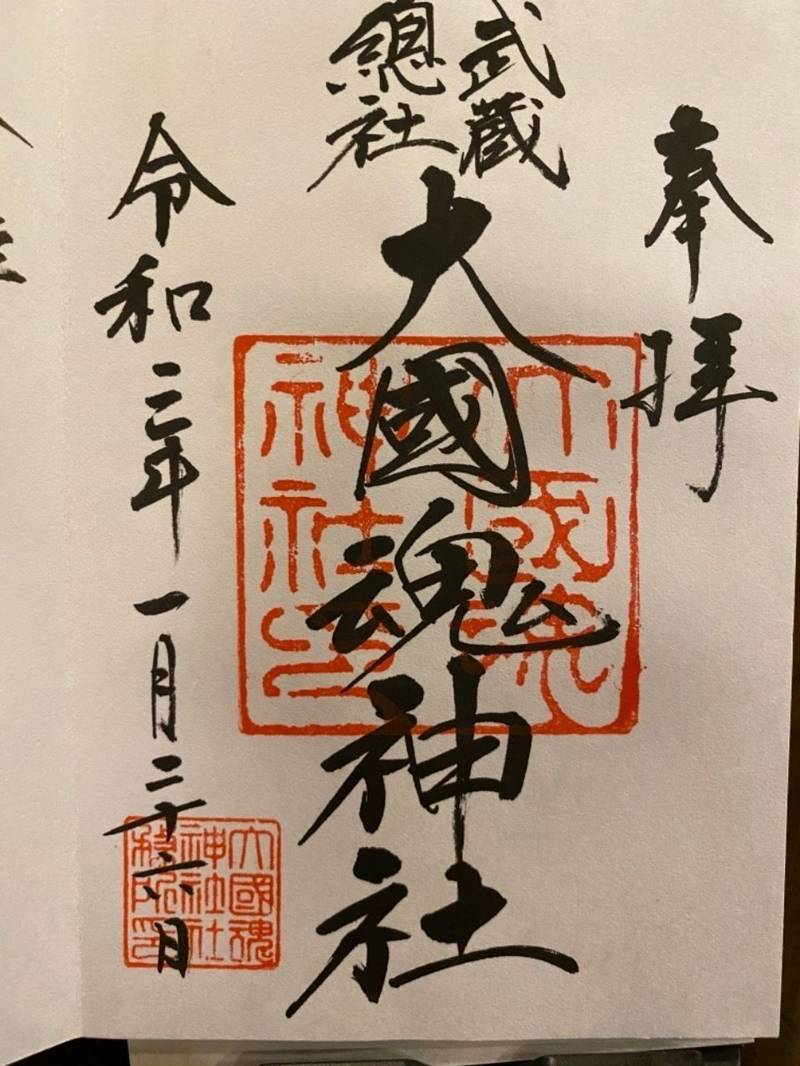 奉拝
武蔵
總社
大國魂神社
令和三年一月二十六日
大國魂
神社印
大國魂
神社社
務所印